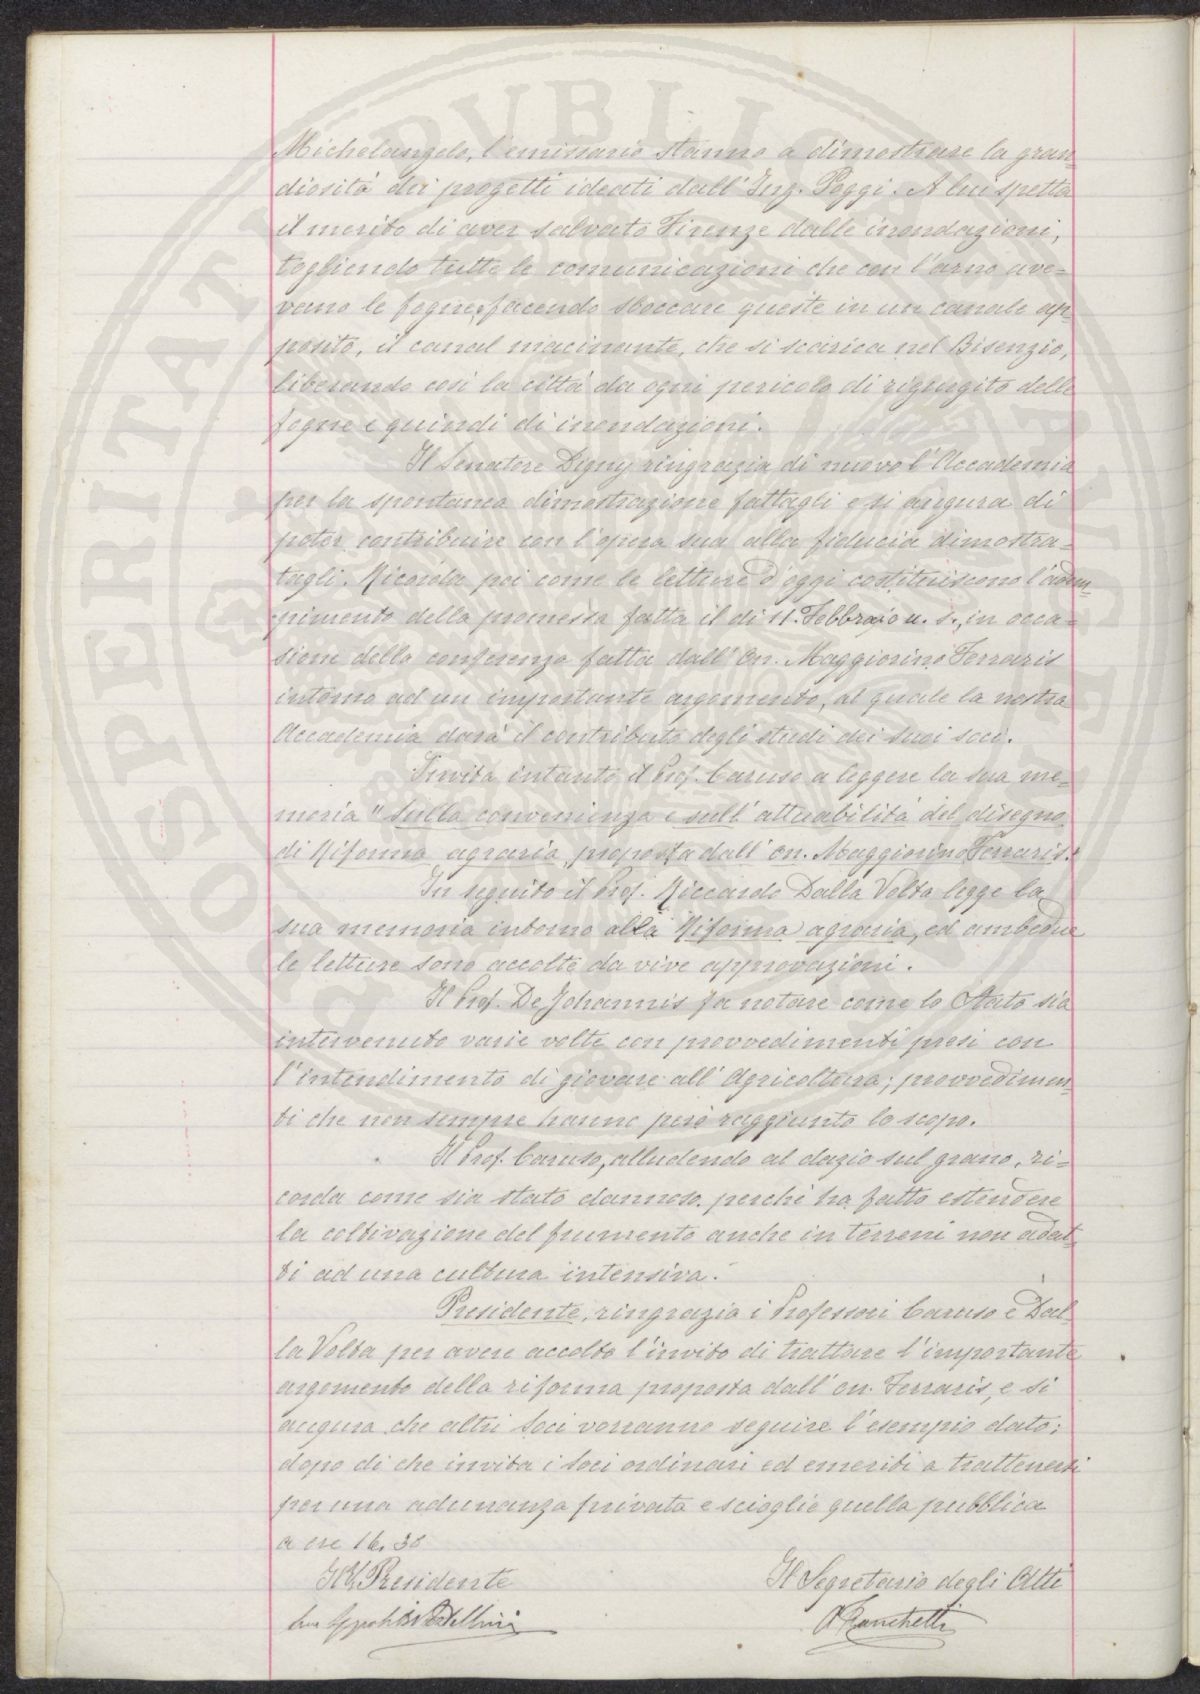 Michelangelo, l'emissario stanno a dimostrare la gran=
diosità dei progetti ideati dall'Ing. Poggi. A lui spetta
il merito di aver salvato Firenze dalle inondazioni,
togliendo tutte le comunicazioni che con l'arno ave=
vano le fogne, facendo sboccare queste in un canale ap=
posito, il canal macinante, che si scarica nel Bisenzio,
liberando così la città da ogni pericolo di rigurgito delle
fogne e quindi di inondazioni.
Il Senatore Digny ringrazia di nuovo l'Accademia
per la spontanea dimostrazione fattagli e si augura di
poter contribuire con l'opera sua alla fiducia dimostra=
tagli. Ricorda poi come le letture d'oggi costituiscono l'adem=
pimento della promessa fatta il dì 11. Febbrajo u. s., in occa=
sione della conferenza fatta dall'On. Maggiorino Ferraris
intorno ad un importante argomento, al quale la nostra
Accademia darà il contributo degli studi dei suoi soci.
Invita intanto il Prof. Caruso a leggere la sua me=
moria "Sulla convenienza e sull'attuabilità del disegno
di Riforma agraria proposta dall'On. Maggiorino Ferraris."
In seguito il Prof. Riccardo Dalla Volta legge la
sua memoria intorno alla Riforma agraria, ed ambedue
le letture sono accolte da vive approvazioni.
Il Prof. De Johannis fa notare come lo Stato sia
intervenuto varie volte con provvedimenti presi con
l'intendimento di giovare all'Agricoltura; provvedimen=
ti che non sempre hanno però raggiunto lo scopo.
Il Prof. Caruso, alludendo al dazio sul grano, ri=
corda come sia stato dannoso, perché ha fatto estendere
la coltivazione del frumento anche in terreni non adat=
ti ad una cultura intensiva.
Presidente, ringrazia i Professori Caruso e Dal=
la Volta per avere accolto l'invito di trattare l'importante
argomento della riforma proposta dall'on. Ferraris, e si
augura che altri Soci vorranno seguire l'esempio dato;
dopo di che invita i Soci ordinari ed emeriti a trattenersi
per una adunanza privata e scioglie quella pubblica
a ore 16.30
Il V. Presidente Il Segretario degli Atti
PROSPERITATI PUBLICAE AUGENDAE